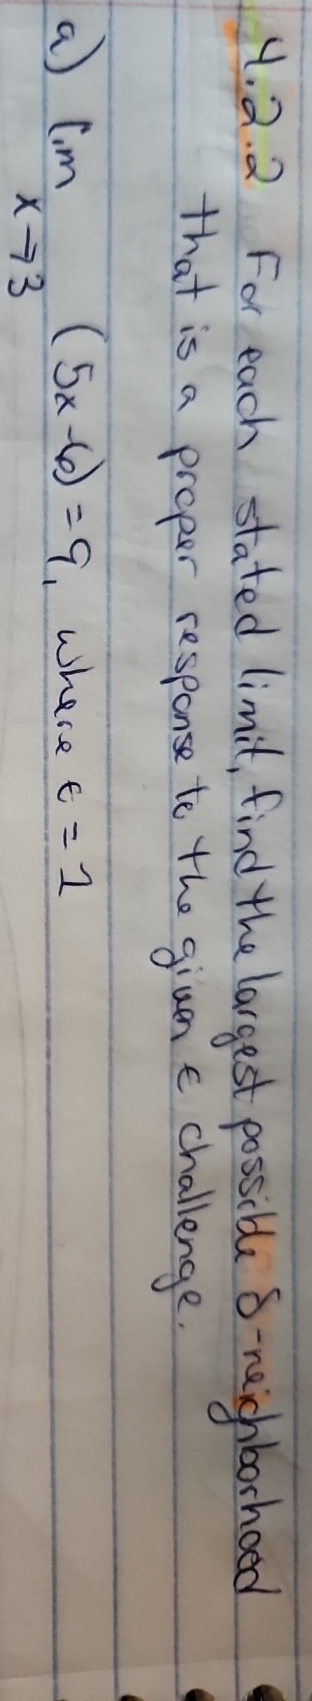 4.2.2 For each stated limit, find the largest possible δ-neighborhood
that is a proper response to the given ε challenge.
a) lim (5x-6) = 9, where ε = 1
x→3